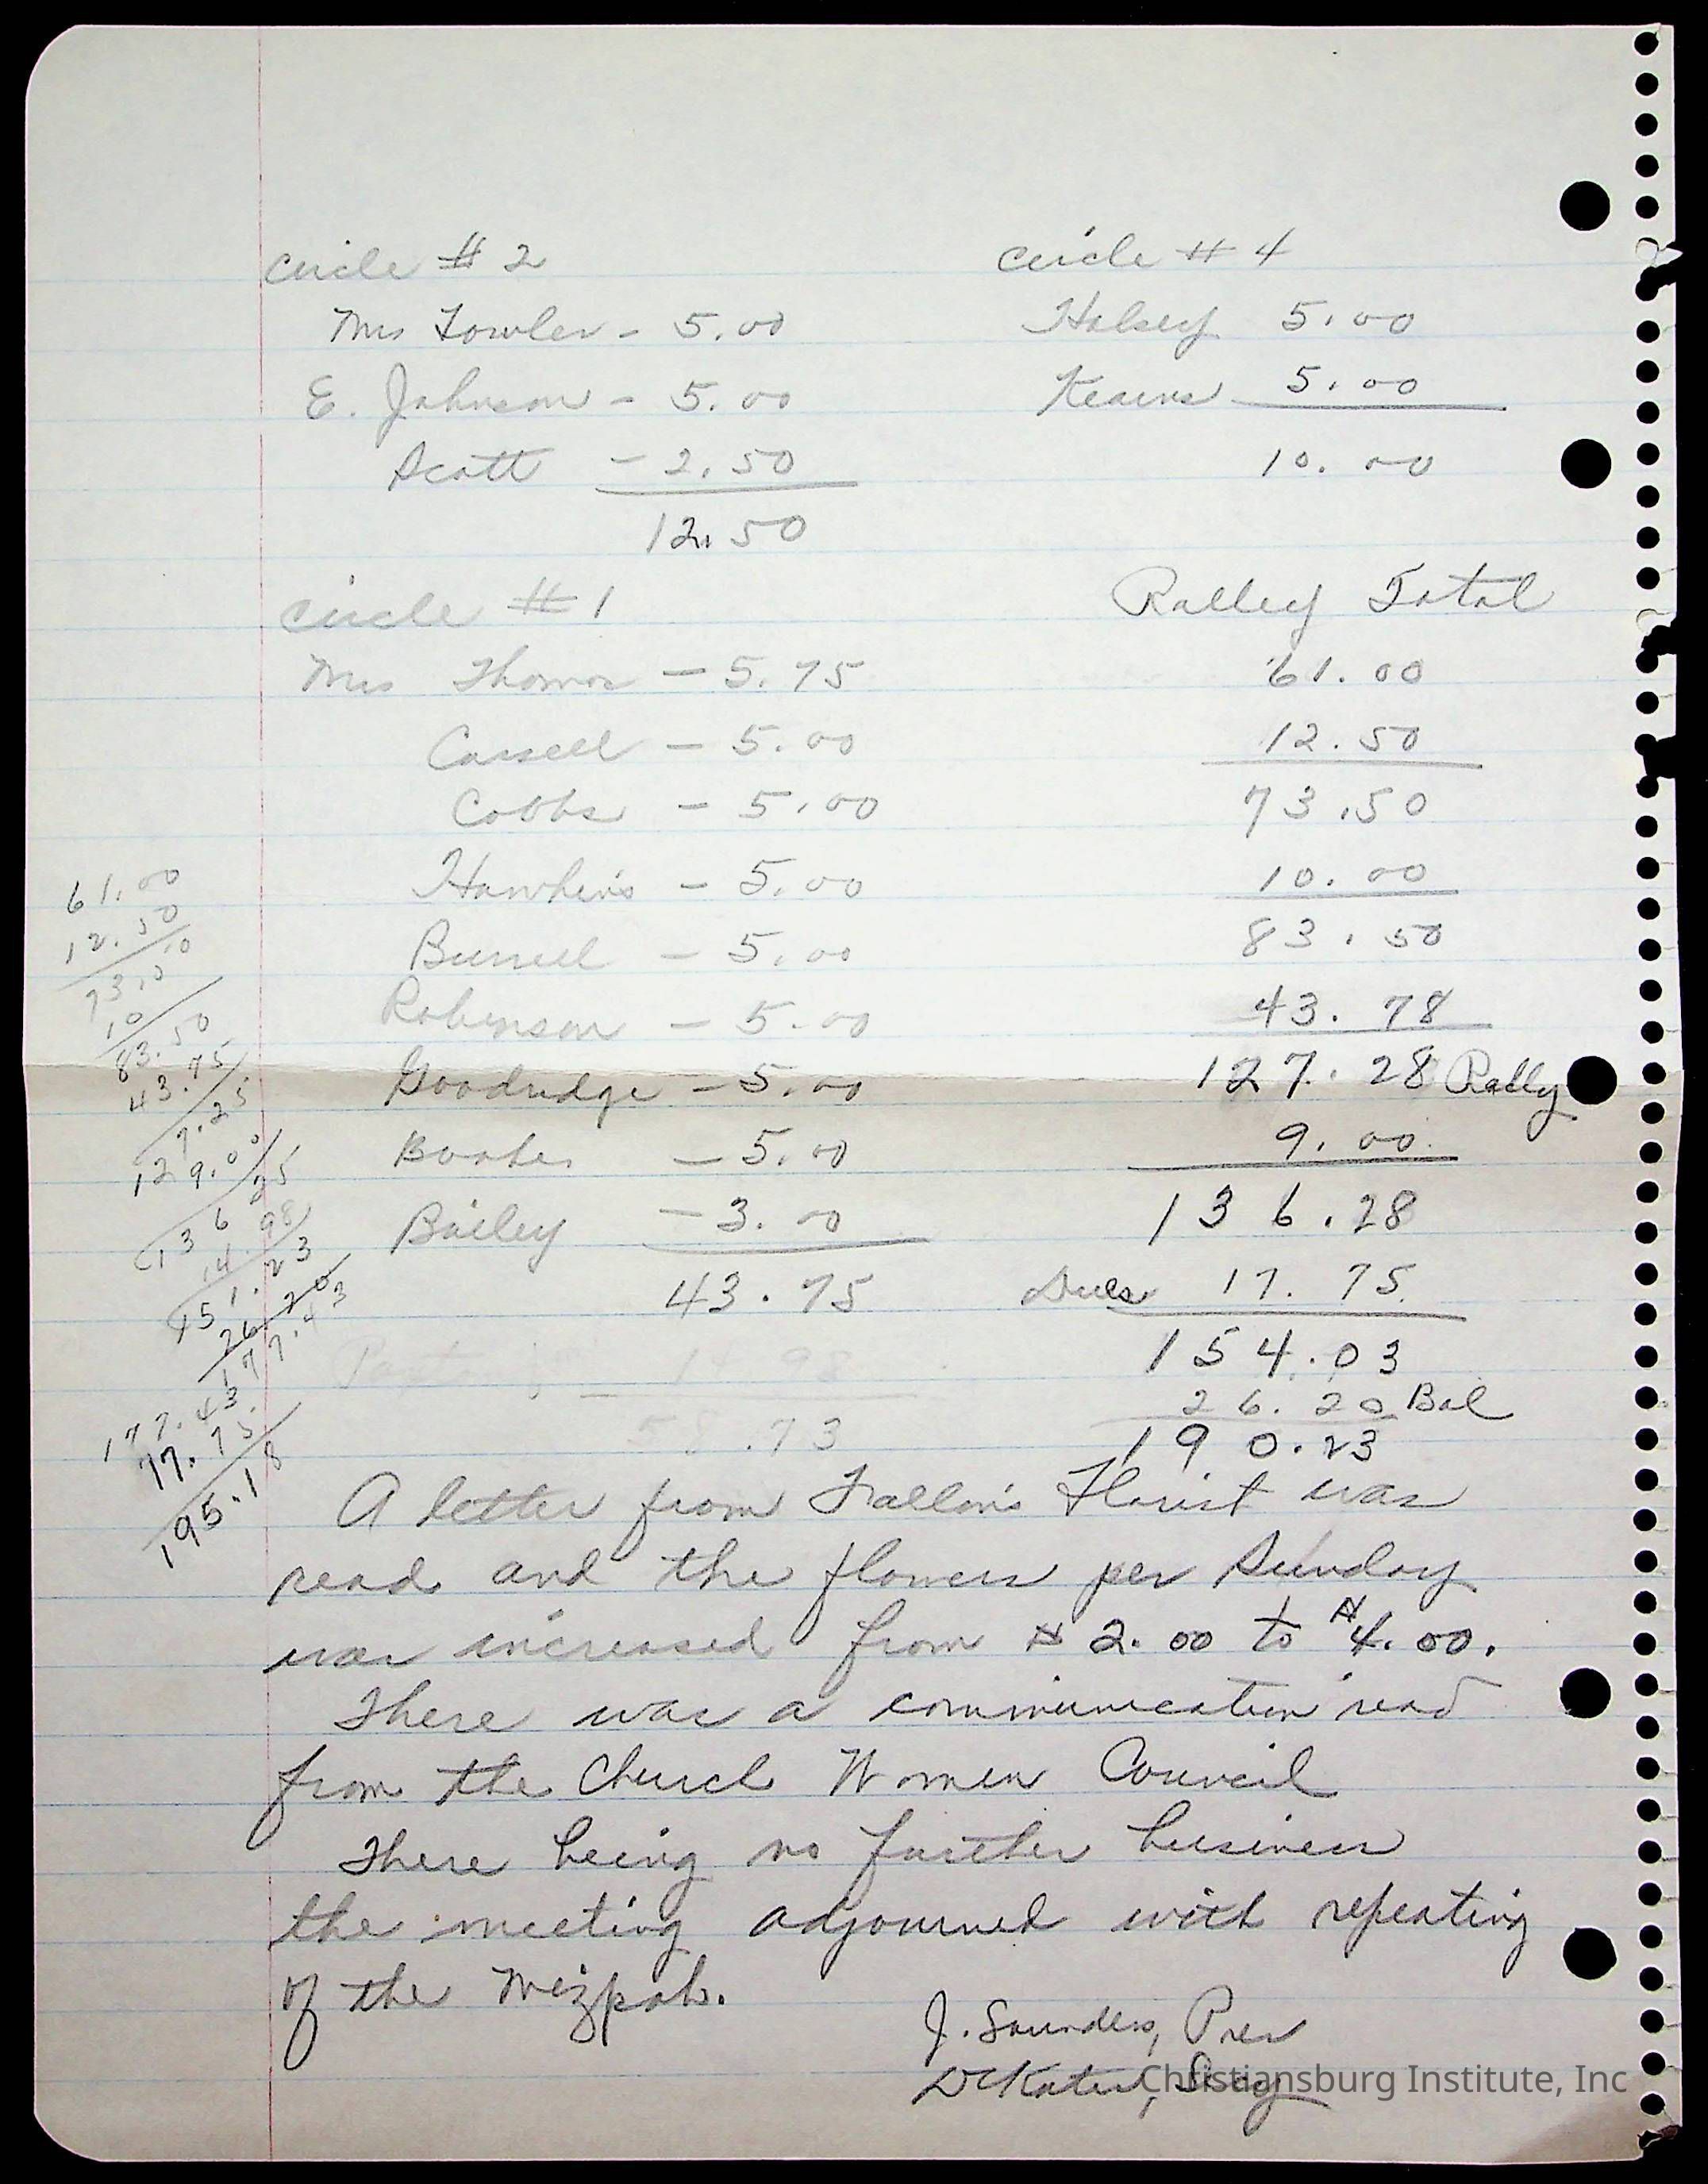 Circle # 2
Mrs Fowler - 5.00
E. Johnson - 5.00
Scott - 2.50
12.50
Circle # 4
Halsey 5.00
Kearns 5.00
10.00
Circle # 1
Mrs Thomas - 5.75
Cassell - 5.00
Cobbs - 5.00
Hawkins - 5.00
Burrell - 5.00
Robinson - 5.00
Goodridge - 5.00
Booker - 5.00
Bailey - 3.00
43.75
14.98
58.73
Ralley Total
61.00
12.50
73.50
10.00
83.50
43.78
127.28 Rally
9.00
136.28
Dues 17.75
154.03
26.20 Bal
190.23
61.00
12.50
10
83.50
43.75
7.25
129.00
136 25
14.98
151.23
26 20
177.43
177.43
17.75
195.18
A letter from Fallon's Florist was
read and the flowers per Sunday
was increased from $ 2.00 to $4.00.
There was a communication read
from the Church Women Council
There being no further business
the meeting adjourned with repeating
of the Mizpah.
J. Saunders, Pres
Secy
Christiansburg Institute, Inc